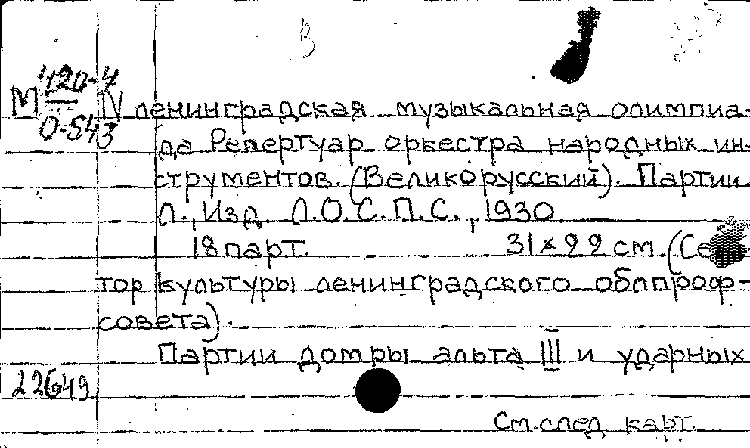 М 420-4
О-543
IV ленинградская музыкальная олимпиа-
да Репертуар оркестра народных ин-
струментов. (Великорусский). Партии
Л., Изд. Л.О.С.П.С., 1930
18 парт. 31 x 22 см. (Сек
тор культуры ленинградского облпроф-
совета).
Партии домры альта III и ударных
22649
См. след. карт.